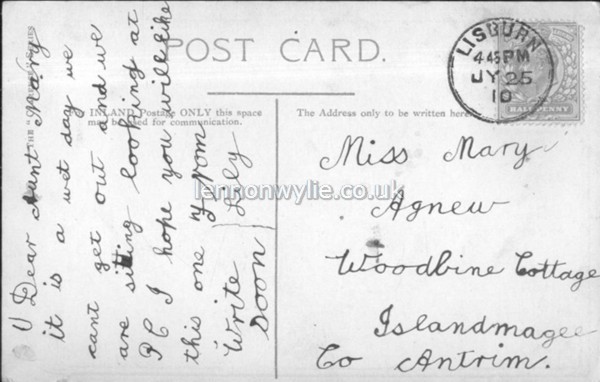 POST CARD.
INLAND Postage ONLY this space
may be used for communication.
The Address only to be written here.
LISBURN
4 45 PM
JY 25
10
HALFPENNY
Dear Aunt Mary
it is a wet day we
cant get out and we
are sitting looking at
P C I hope you will like
this one from
Lily
Write
soon
Miss Mary
Agnew
Woodbine Cottage
Islandmagee
Co Antrim.
lennonwylie.co.uk